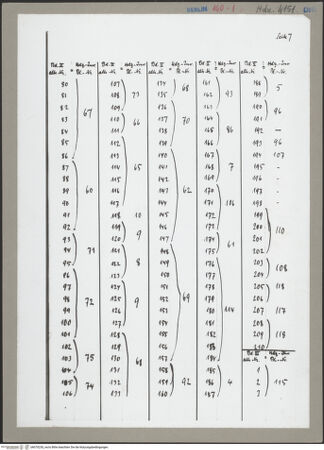 BERLIN
Seite 7
Bd. II
alte Nr. = Hdz-Inv. Bl.-Nr.
80
81
82
83 67
84
85
86
87
88
89 60
90
91
92
93
94 71
95
96
97
98 72
99
100
101
102
103 75
104
105 74
106
107
108 73
109
110 66
111
112
113
114 65
115
116
117
118 10
119
120 9
121
122 8
123
124
125 9
126
127
128
129
130 68
131
132
133
134 68
135
136
137 70
138
139
140
141
142
143 62
144
145
146
147
148
149
150
151
152 69
153
154
155
156
157
158
159 92
160
161
162 93
163
164
165 86
166
167
168 7
169
170
171
172
173
174 61
175
176
177
178
179
180 114
181
182
183
184
185
186 4
187
188 5
189
190 96
191
192 –
193 96
194 107
195 -
196 -
197 -
198 -
199
200 110
201
202
203 108
204
205 118
206
207 117
208
209 118
210
Bd. III
alte Nr. = Hdz-Inv. Bl.-Nr.
1
2 115
3